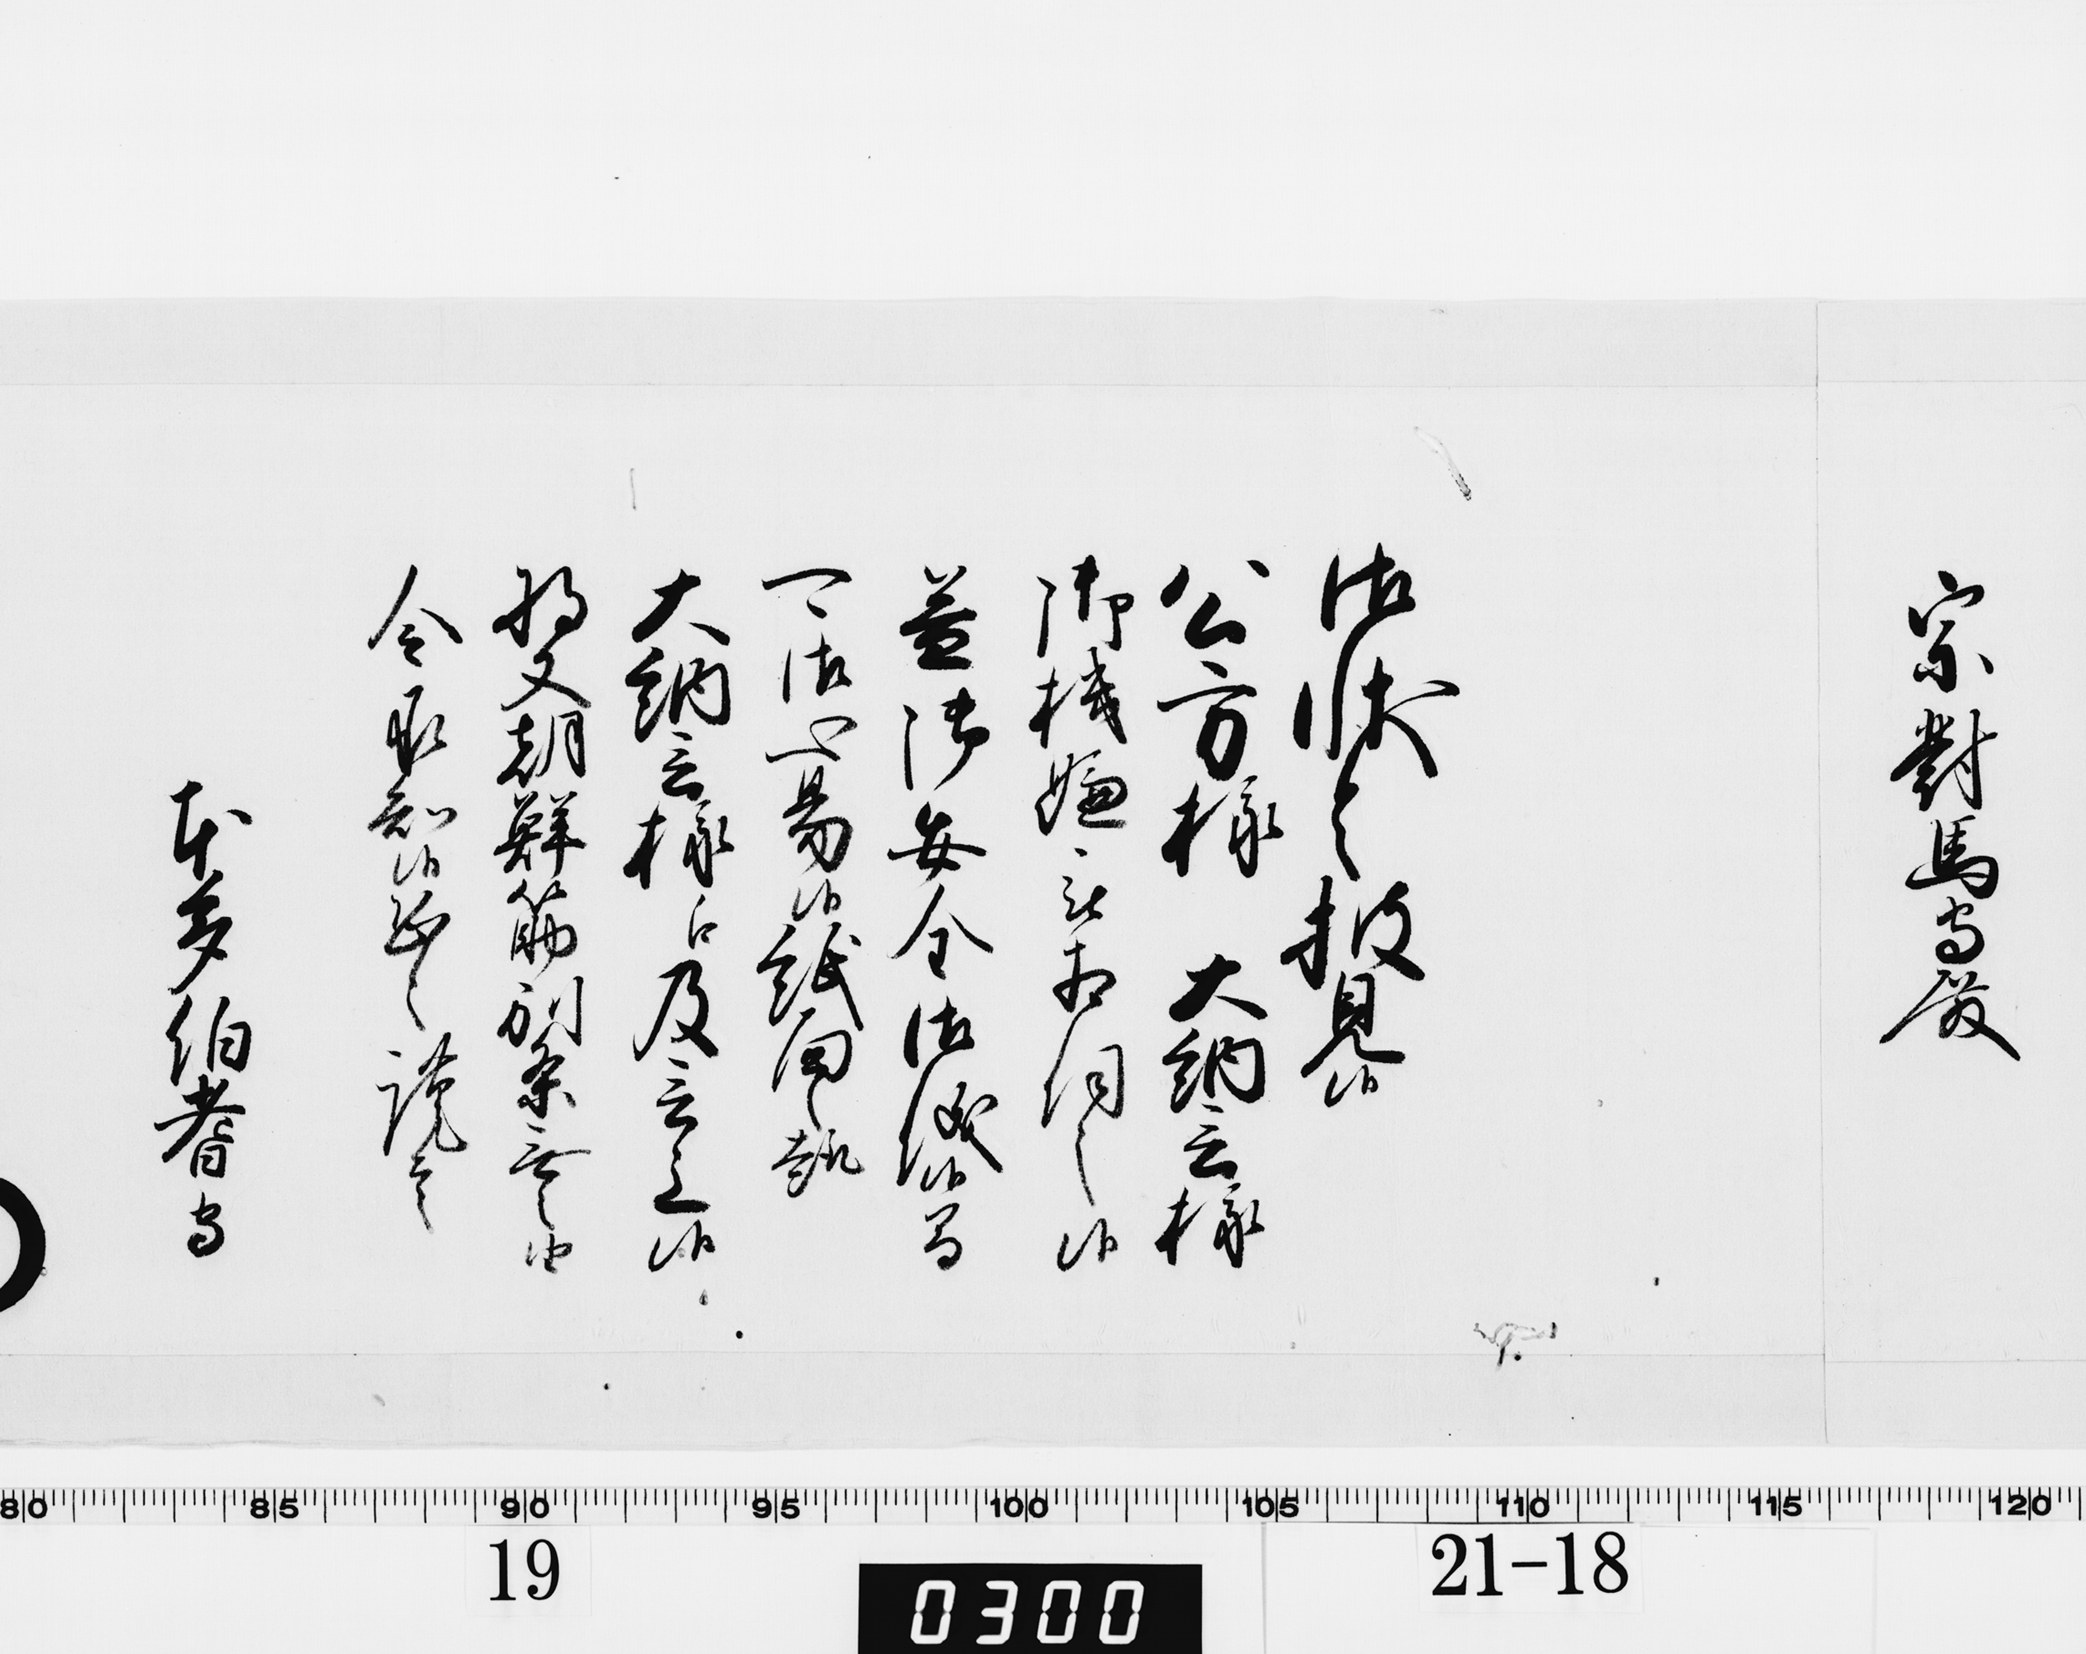 宗對馬守殿
御状令披見候
公方様 大納言様
御機嫌之非相伺之候
益御安全御儀候間
可御心易候紙面趣
大納言様江及言上候
将又朝鮮筋別条無之由
令承知候恐々謹言
本多伯耆守
80 85 90 95 100 105 110 115 120
19
0300
21-18